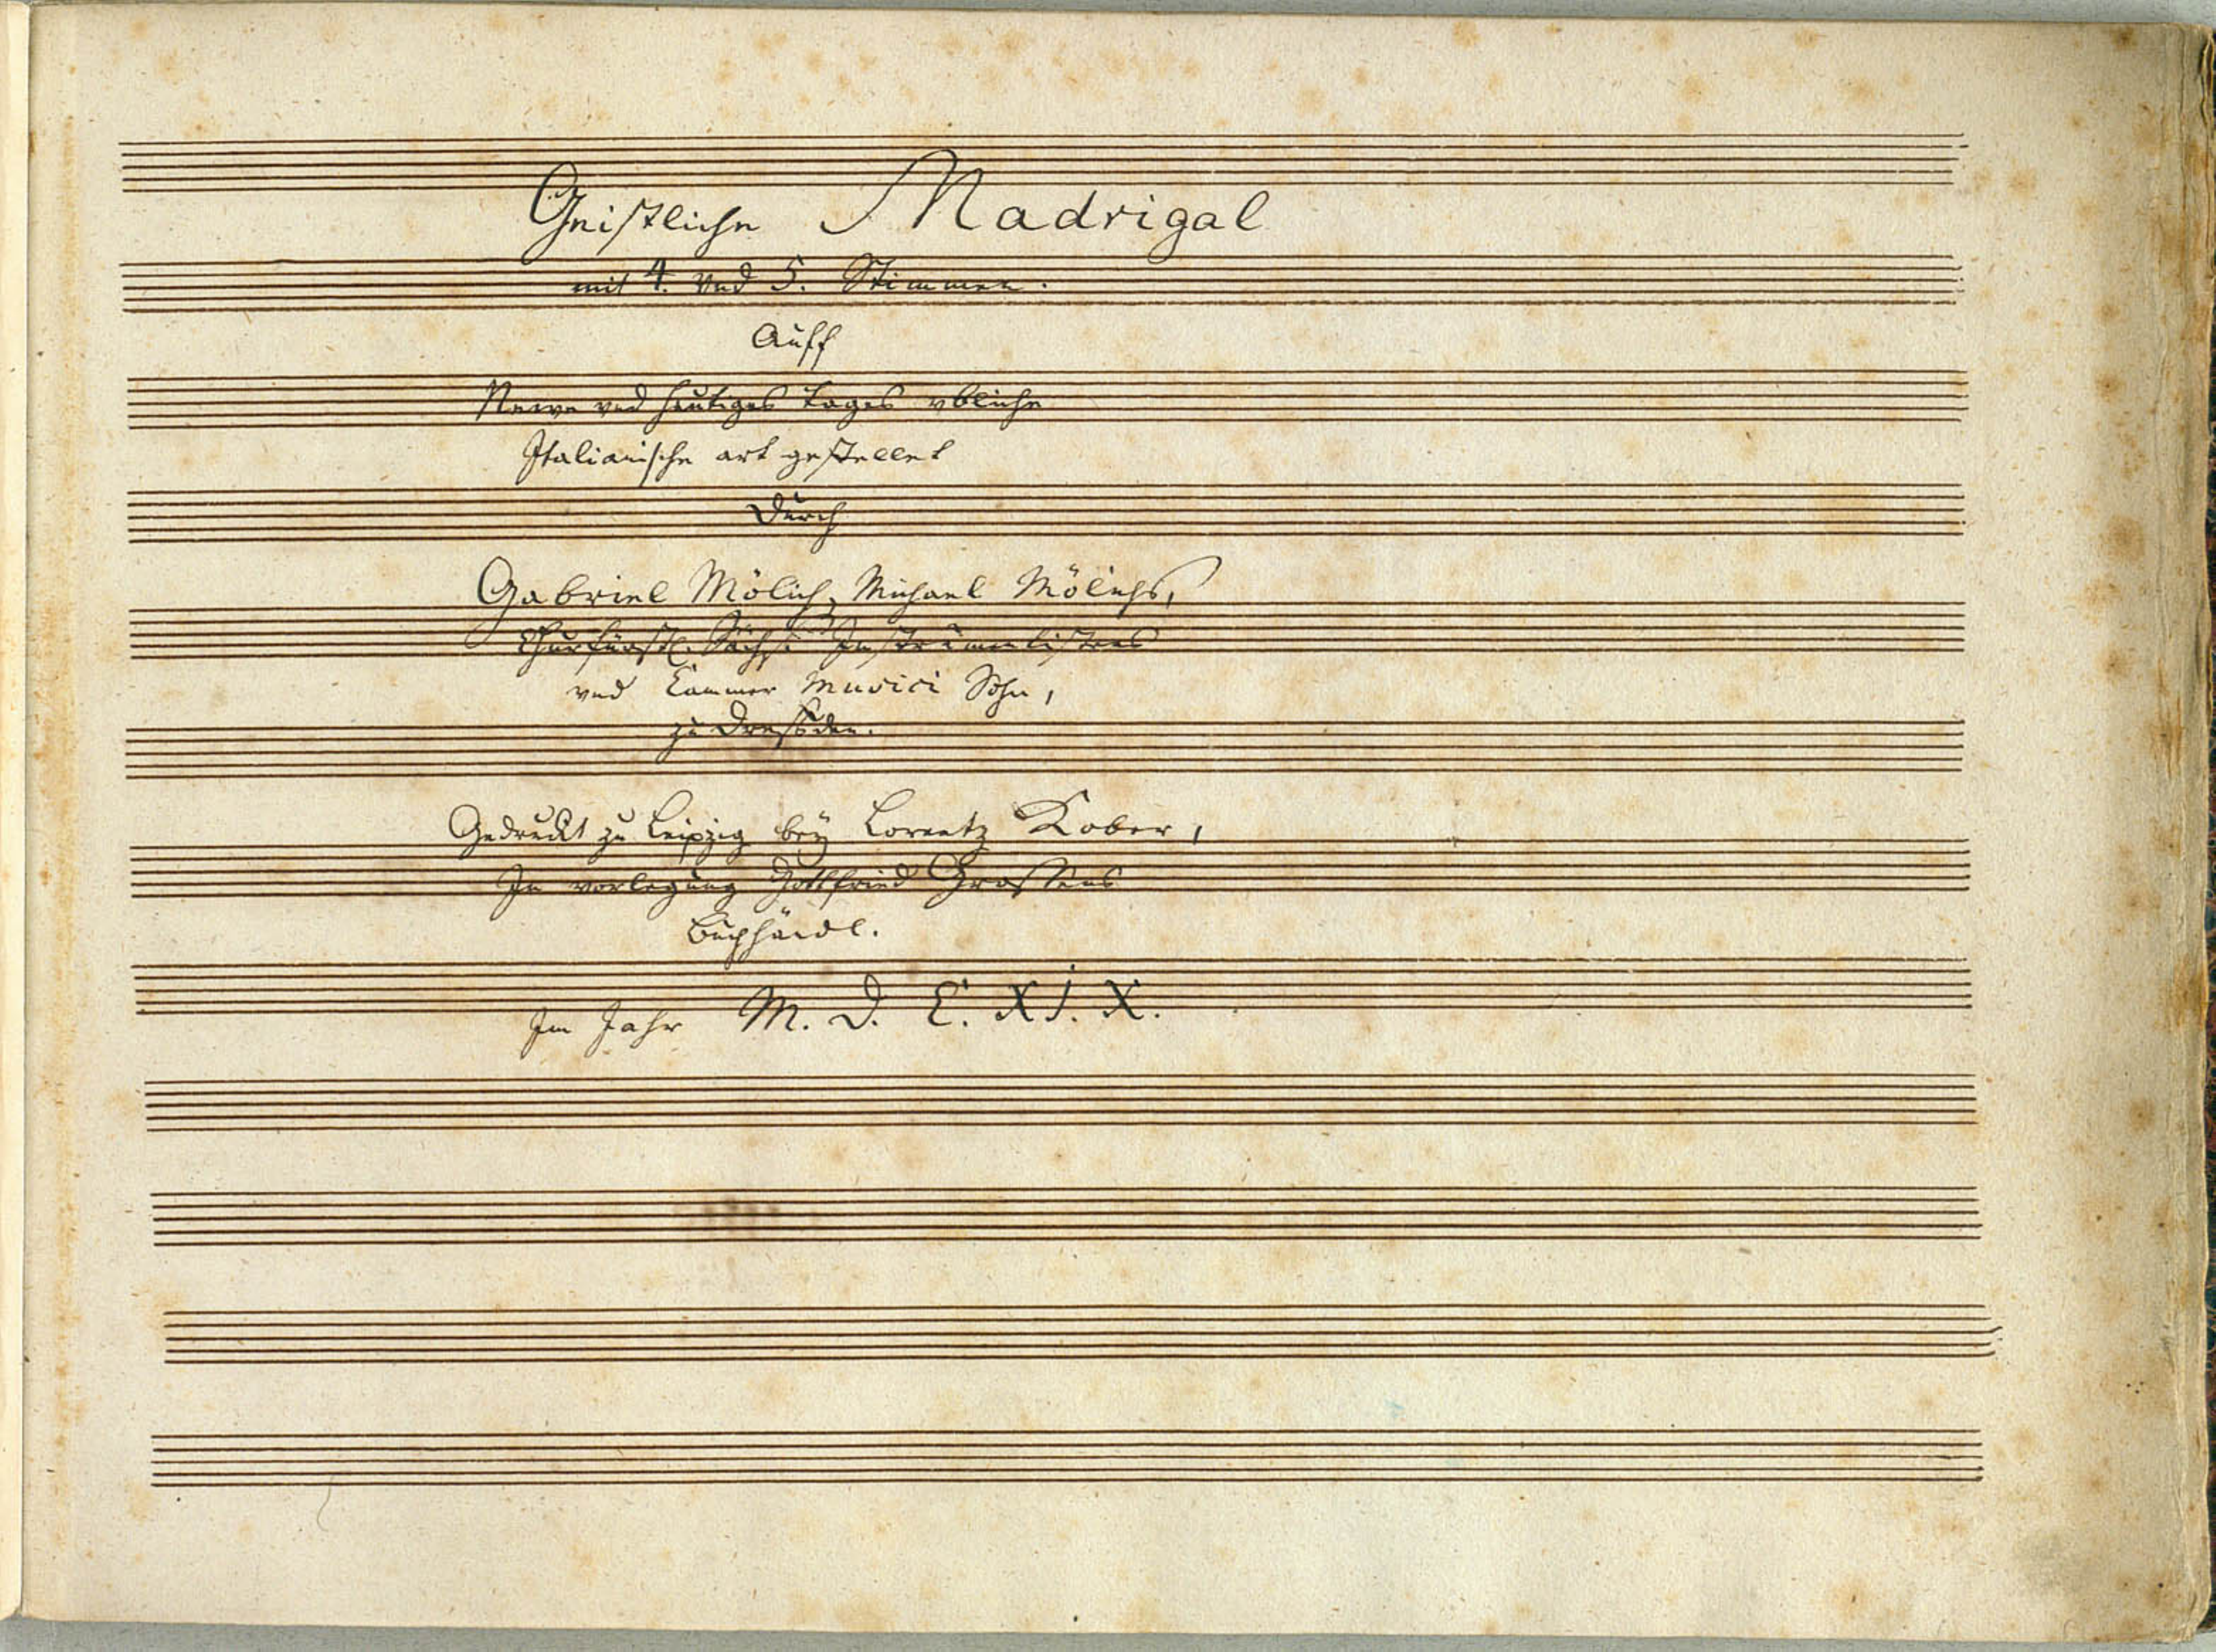 Geistliche Madrigal
mit 4. vnd 5. Stimmen.
Auff
Newe vnd heutiges tages vbliche
Italianische art gestellet
Durch
Gabriel Mölich, Michael Mölichs,
Churfürstl. Sächs: Instrumentistens
vnd Cammer Musici Sohn,
zu Dreßden.
Gedruckt zu Leipzig bey Lorentz Kober,
In vorlegung Gottfried Grossens
Buchhändl.
Im Jahr M. D. C. XI. X.